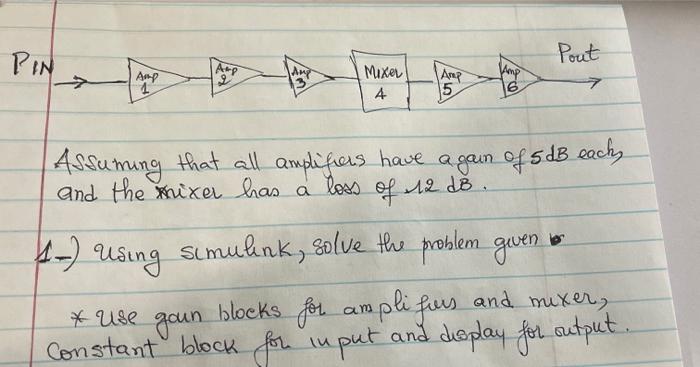 PIN Amp 1 Amp 2 Amp 3 Mixer 4 Amp 5 Amp 6 Pout
Assuming that all amplifiers have a gain of 5dB each,
and the mixer has a loss of 12 dB.
1-) using simulink, solve the problem given
* use gain blocks for amplifiers and mixer,
Constant block for input and display for output.